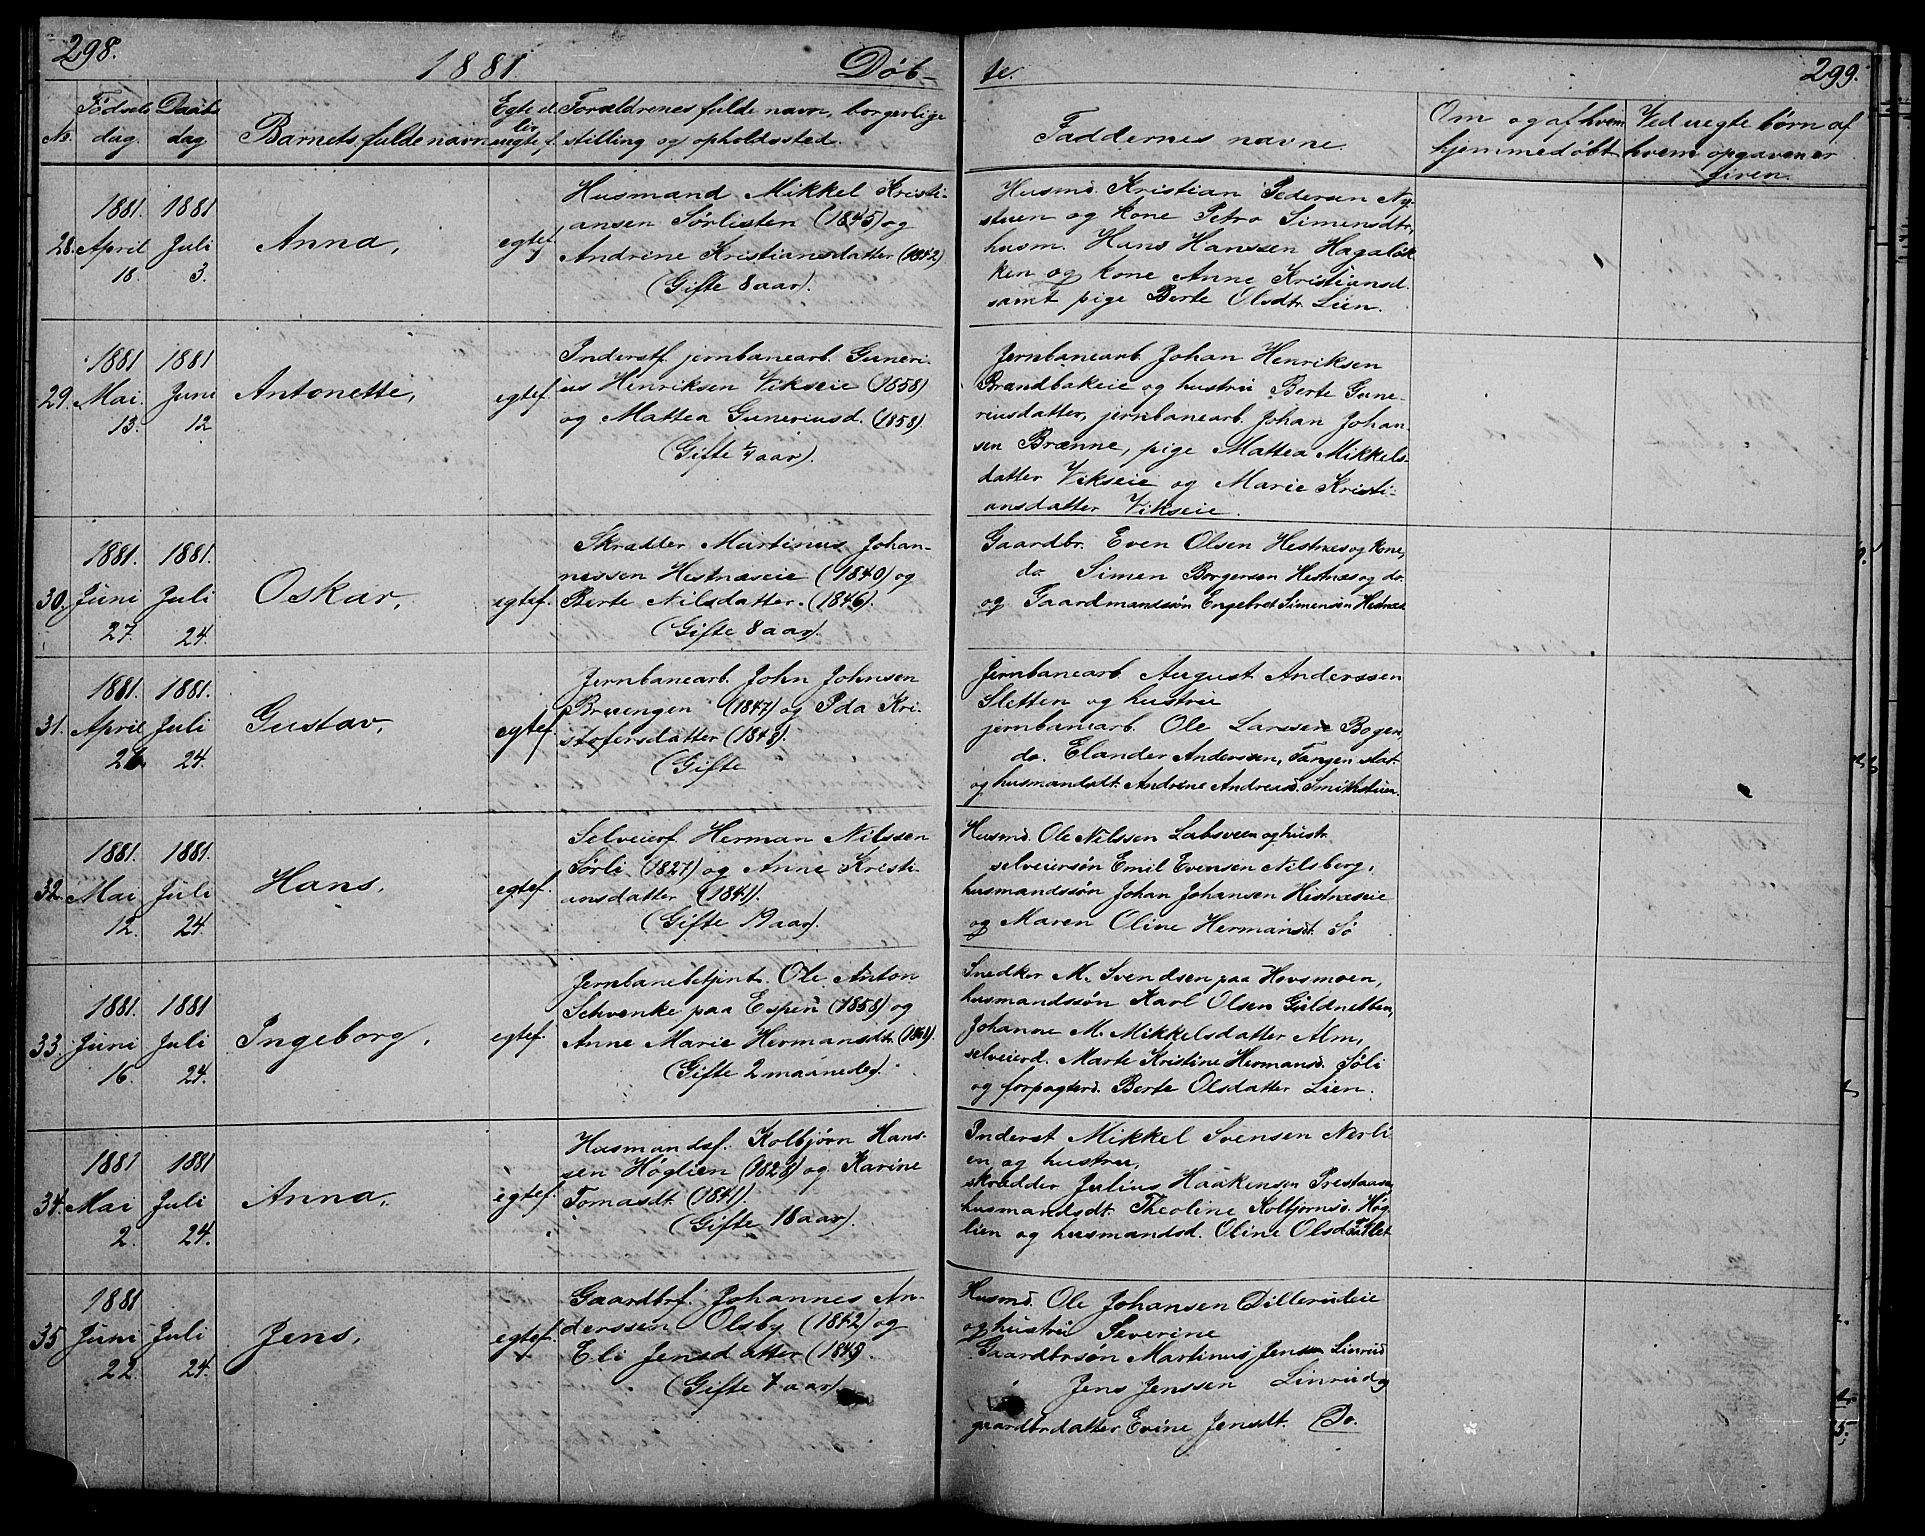 298.
1881.
Døb-
te.
299.
No.
Fødsels
dag.
Daabs
dag
Barnets fulde navn
Egte el.
uegte f.
Forældrenes fulde navn, borgerlige
stilling og opholdssted.
Faddernes navne.
Om og af hvem
hjemmedøbt
Ved uegte børn af
hvem opgaven er
given.
28.
1881.
April
18.
1881
Juli
3.
Anna,
egtef.
Husmand Mikkel Kristi-
ansen Sørlisten (1845) og
Andrine Kristiansdatter (1842)
(Gifte 8 aar).
Husmd. Kristian Pedersen Ny-
stuen og kone Petra Simensdtr,
husm. Hans Hanssen Hagaløk-
ken og kone Anne Kristiansd.
samt pige Berte Olsdtr. Lien.
29.
1881
Mai
13.
1881
Juni
12
Antonette,
egtef.
Inderstf. jernbanearb. Guneri-
us Henriksen Vikseie (1858)
og Mattea Guneriusd. (1858)
(Gifte 1/4 aar).
Jernbanearb. Johan Henriksen
Brandbakeie og hustru Berte Gune-
riusdatter, jernbanearb. Johan Johan
sen Brænne, pige Mattea Mikkels-
datter Vikseie og Marie Kristi-
ansdatter Vikseie.
30.
1881.
Juni
27.
1881.
Juli
24.
Oskar,
egtef.
Skrædder Martinus Johan-
nessen Hestnæseie (1840) og
Berte Nilsdatter. (1846).
(Gifte 8 aar).
Gaardbr. Even Olsen Hestnæs og kone,
do. Simen Borgersen Hestnæs og do.
og Gaardmandssøn Engebret Simensen Hestnæs
31.
1881.
April
1881.
Juli
24.
Gustav,
egtef.
Jernbanearb. John Johnsen
Bruengen (1847) og Ida Kri-
stofersdatter (1848).
(Gifte
Jernbanearb. August Anderssen
Sletten og hustru
jernbanearb. Ole Larssen Bogen,
do. Elander Anderssen, Tangen stat.
og husmandsdt. Andrine Andreasd. Smithstuen.
32.
1881.
Mai
12.
1881.
Juli
24.
Hans,
egtef.
Selveierf. Herman Nilssen
Sørli (1827) og Anne Kristi-
ansdatter (1841).
(Gifte 19 aar).
Husmd. Ole Nilssen Labsveen og hustr.
selveiersøn Emil Evensen Nilsberg,
husmandssøn Johan Johansen Hestnæseie
og Maren Oline Hermansdt. Sö
33.
1881.
Juni
16.
1881
Juli
24.
Ingeborg,
egtef.
Jernbanebetjent. Ole Anton
Schvenke paa Espen (1858) og
Anne Marie Hermansdt.
(Gifte 2 maaneder).
Snedker M. Svendsen paa Hovsmoen,
husmandssøn Karl Olsen
Johanne M. Mikkelsdatter Alm,
selveierd. Marte Kristine Hermansd. Söli
og forpagterd. Berte Olsdatter Lien.
34.
1881
Mai
2.
1881
Juli
24.
Anna,
egtef.
Husmandsf. Kolbjørn Hans-
sen Høglien (1828) og Karine
Tomasdt. (1841).
(Gifte 18 aar).
Inderst Mikkel Svensen Nerli-
en og hustru,
skrædder Julius Haakensen
husmandsdt. Theoline Kolbjørnsd. Høg-
lien og husmandsd. Oline Olsd.
35
1881
Juni
22.
Juli
24.
Jens,
egtef.
Gaardbrf. Johannes An-
derssen Olsby (1842) og
Eli Jensdatter
(Gifte 7 aar).
Husmd. Ole Johansen Dillerudeie
og hustru Severine
Gaardbrsøn Martinus Jensen Linrud
Jens Jenssen Linrud og
gaardbrdatter Evine Jensdt. Do.